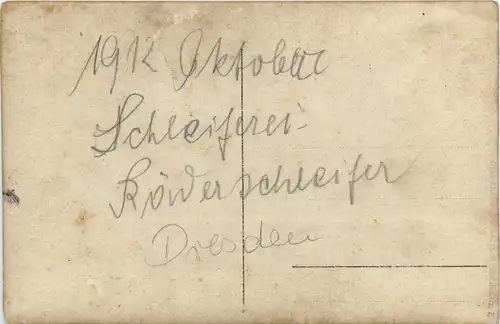 1912 Oktober
Schleiferei-
Räderschleifer
Dresden